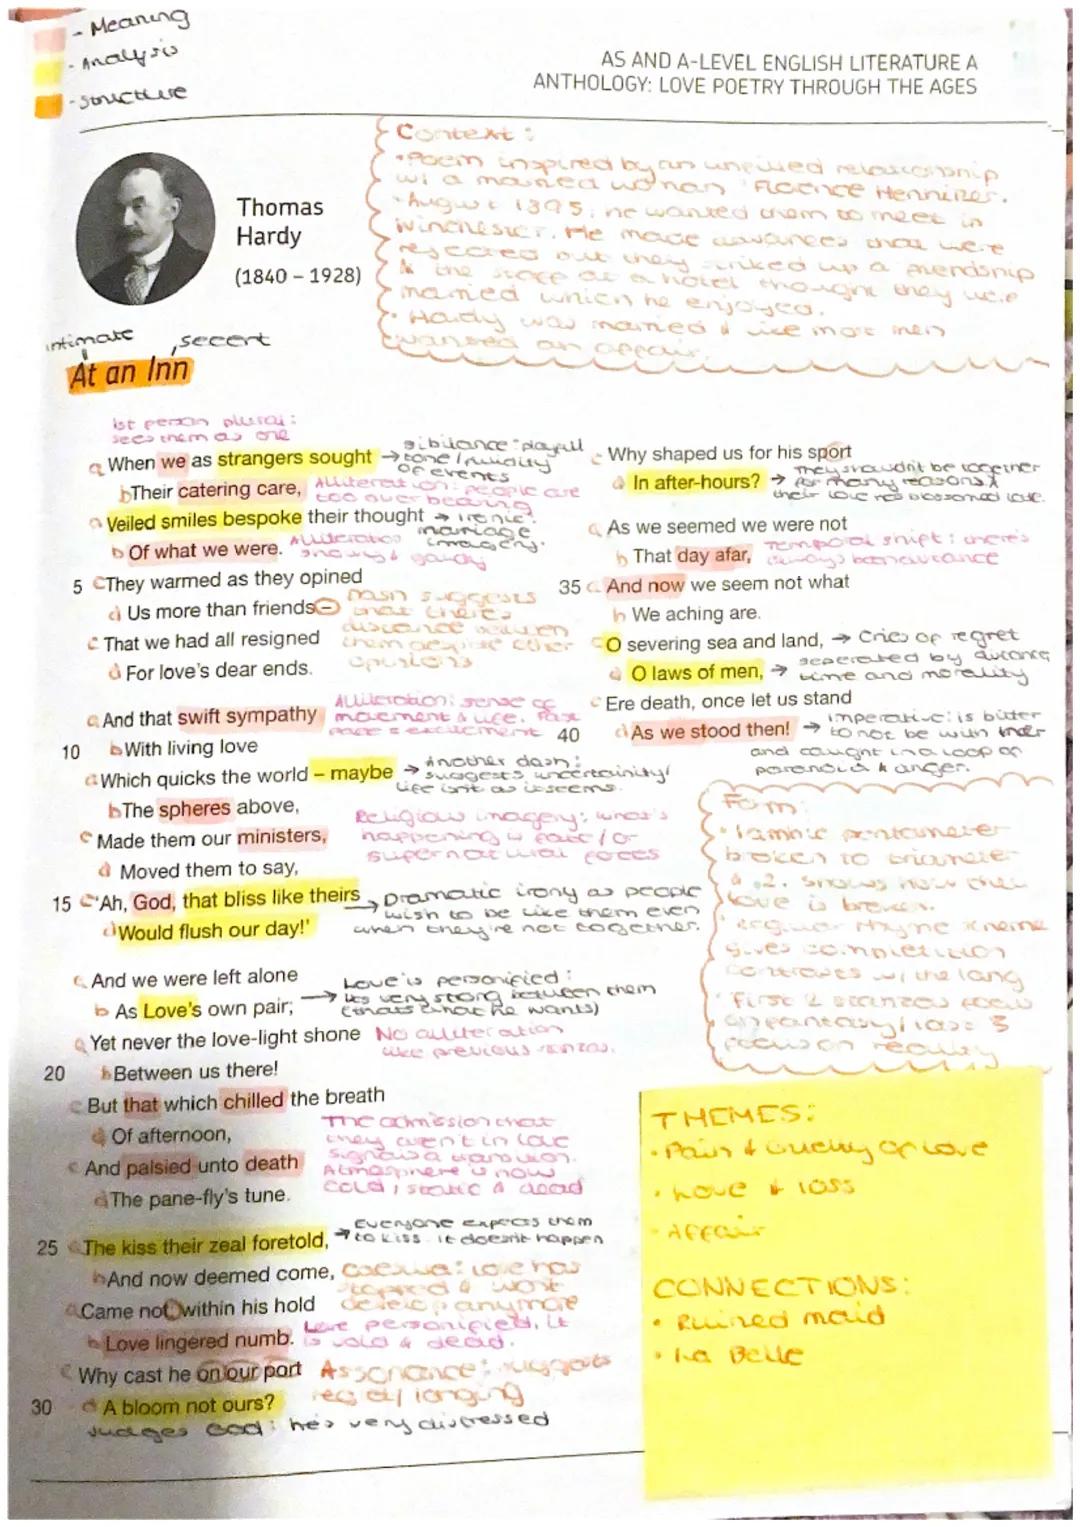 - Meaning
- Analysis
- Structure
AS AND A-LEVEL ENGLISH LITERATURE A
ANTHOLOGY: LOVE POETRY THROUGH THE AGES
Thomas
Hardy
(1840 – 1928)
Context :
• Poem inspired by an relationship
w/ a married woman 'Florence Henniker.
• August 1895, he wanted them to meet in
Winchester. He made advances that were
rejected but they striked up a friendship
& the staff at a hotel thought they were
married which he enjoyed.
• Hardy was married & like most men
wanted an affair.
intimate
secert
At an Inn
1st person plural:
sees them as one
a When we as strangers sought → sibilance: playfull
tone / fluidity
of events
b Their catering care, Alliteration: people are
too over bearing
a Veiled smiles bespoke their thought → ironic:
marriage
imagery.
b Of what we were. Alliteration
showy & gaudy
5 c They warmed as they opined
d Us more than friends –
c That we had all resigned
d For love's dear ends.
Dash suggests
that there's
distance between
them despite other
opinions
Alliteration: sense of
movement & life. Fast
pace = excitement
a And that swift sympathy
10 b With living love
a Which quicks the world – maybe → Another dash:
suggests uncertainity/
life isnt as it seems.
b The spheres above,
c Made them our ministers,
d Moved them to say,
Religious imagery: what's
happening is fate / or
supernatural forces
15 c 'Ah, God, that bliss like theirs → Dramatic irony as people
wish to be like them even
when they're not together.
d Would flush our day!'
a And we were left alone
b As Love's own pair; → Love is personified:
its very strong between them
(thats what he wants)
a Yet never the love-light shone No alliteration
like previous stanzas.
20 b Between us there!
c But that which chilled the breath
d Of afternoon,
c And palsied unto death
d The pane-fly's tune.
The admission that
they aren't in love
signals a transition.
Atmosphere is now
cold, static & dead
25 c The kiss their zeal foretold, → Everyone expects them
to kiss. it doesn't happen
b And now deemed come, Caesura: love has
stopped & wont
develop anymore
a Came not within his hold
b Love lingered numb. Love personified, it
is cold & dead.
c Why cast he on our port Assonance: suggests
regret/longing
30 d A bloom not ours?
Judges God: he's very distressed
c Why shaped us for his sport
d In after-hours? → They shouldn't be together
for many reasons &
their love has blossomed late.
a As we seemed we were not
b That day afar, Temporal shift: there's
always been distance
35 a And now we seem not what
b We aching are.
c O severing sea and land, → Cries of regret
seperated by distance
time and morality
d O laws of men, →
c Ere death, once let us stand
40 d As we stood then! → imperative: is bitter
to not be with her
and caught in a loop of
paranoia & anger.
Form:
• Iambic pentameter
broken to trimeter
& 2. shows how their
love is broken.
• regular rhyme scheme
gives completion
contrasts w/ the lang
• First 2 stanzas focus
on fantasy / last 3
focus on reality
THEMES:
• Pain & cruelty of Love
• Love & loss
- Affair
CONNECTIONS:
• Ruined maid
• La Belle